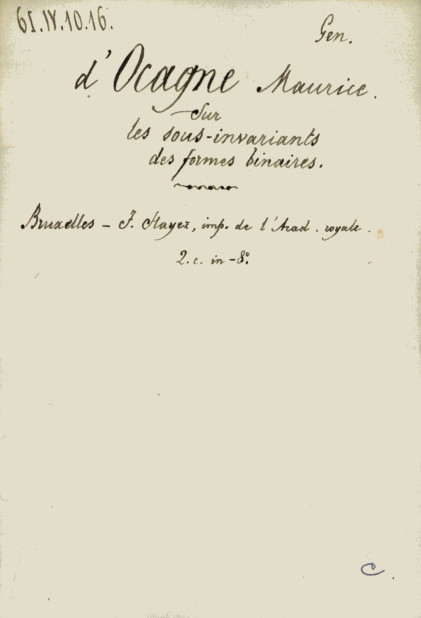 61.IV.10.16.
Gen.
d'Ocagne Maurice.
Sur
les sous-invariants
des formes binaires.
Bruxelles – F. Hayez, imp. de l'Acad. royale.
2.c. in-8°.
C.